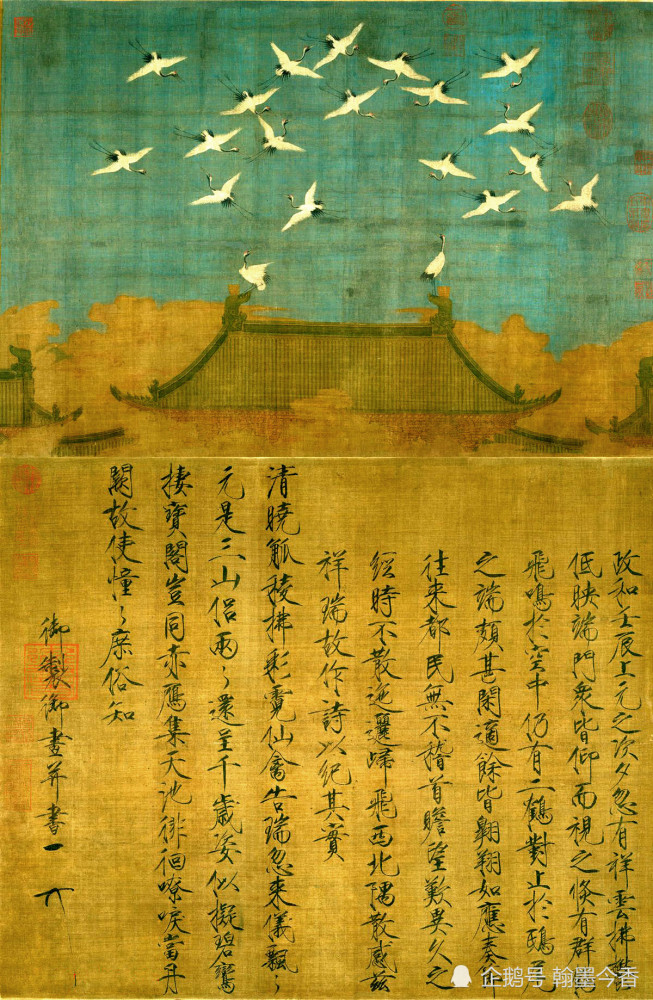 政和壬辰上元之次夕忽有祥雲拂鬱
低映端門衆皆仰而視之倏有群鶴
飛鳴於空中仍有二鶴對止於鴟
之端頗甚閑適餘皆翱翔如應奏節
往來都民無不稽首瞻望歎異久之
經時不散迤邐歸飛西北隅散感茲
祥瑞故作詩以紀其實
清曉觚稜拂彩霓仙禽告瑞忽來儀飄〻
元是三山侶兩〻還呈千歲姿似擬碧鸞
棲寶閣豈同赤鴈集天池徘徊嘹唳當丹
闕故使憧〻庶俗知
御製御畫并書
企鹅号 翰墨今香